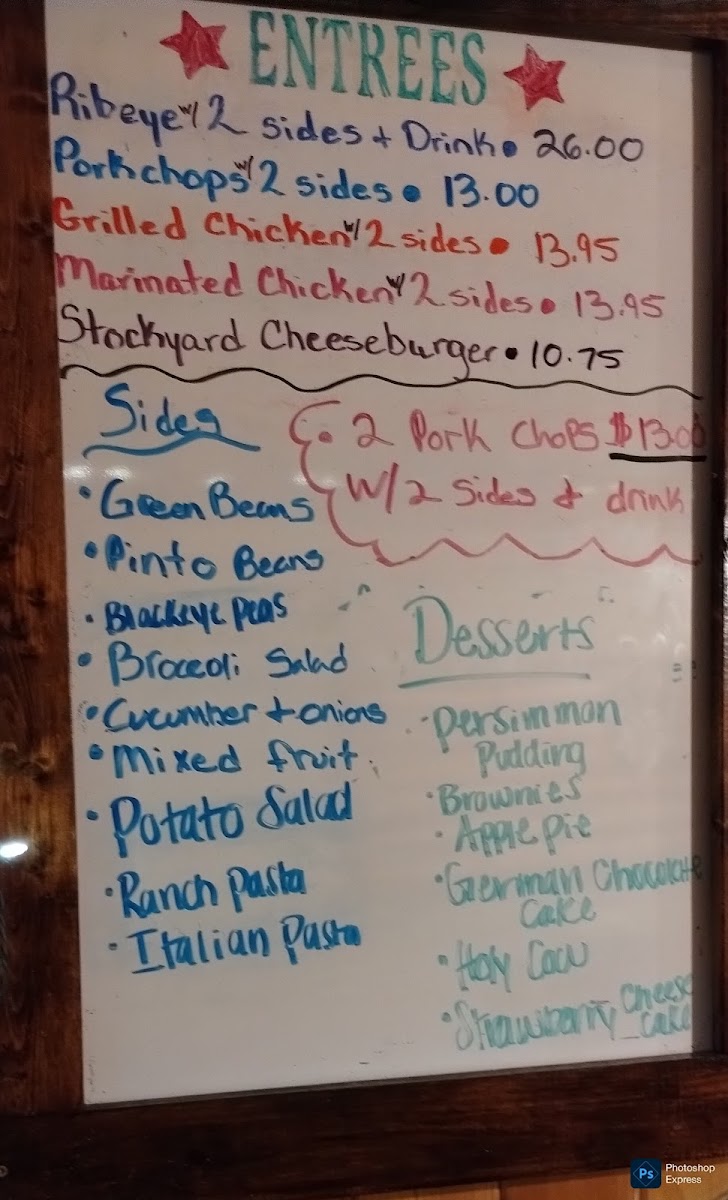 ENTREES
Ribeye w/ 2 sides + Drink • 26.00
Porkchops w/ 2 sides • 13.00
Grilled Chicken w/ 2 sides • 13.95
Marinated Chicken w/ 2 sides • 13.95
Stockyard Cheeseburger • 10.75
Sides
• Green Beans
• Pinto Beans
• Blackeye peas
• Broccoli Salad
• Cucumber + onions
• Mixed fruit
• Potato Salad
• Ranch pasta
• Italian Pasta
• 2 Pork Chops $13.00
W/ 2 Sides & drink
Desserts
• persimmon
Pudding
• Brownies
• Apple pie
• German Chocolate
Cake
• Holy Cow
• Strawberry Cheese
cake
Ps Photoshop
Express